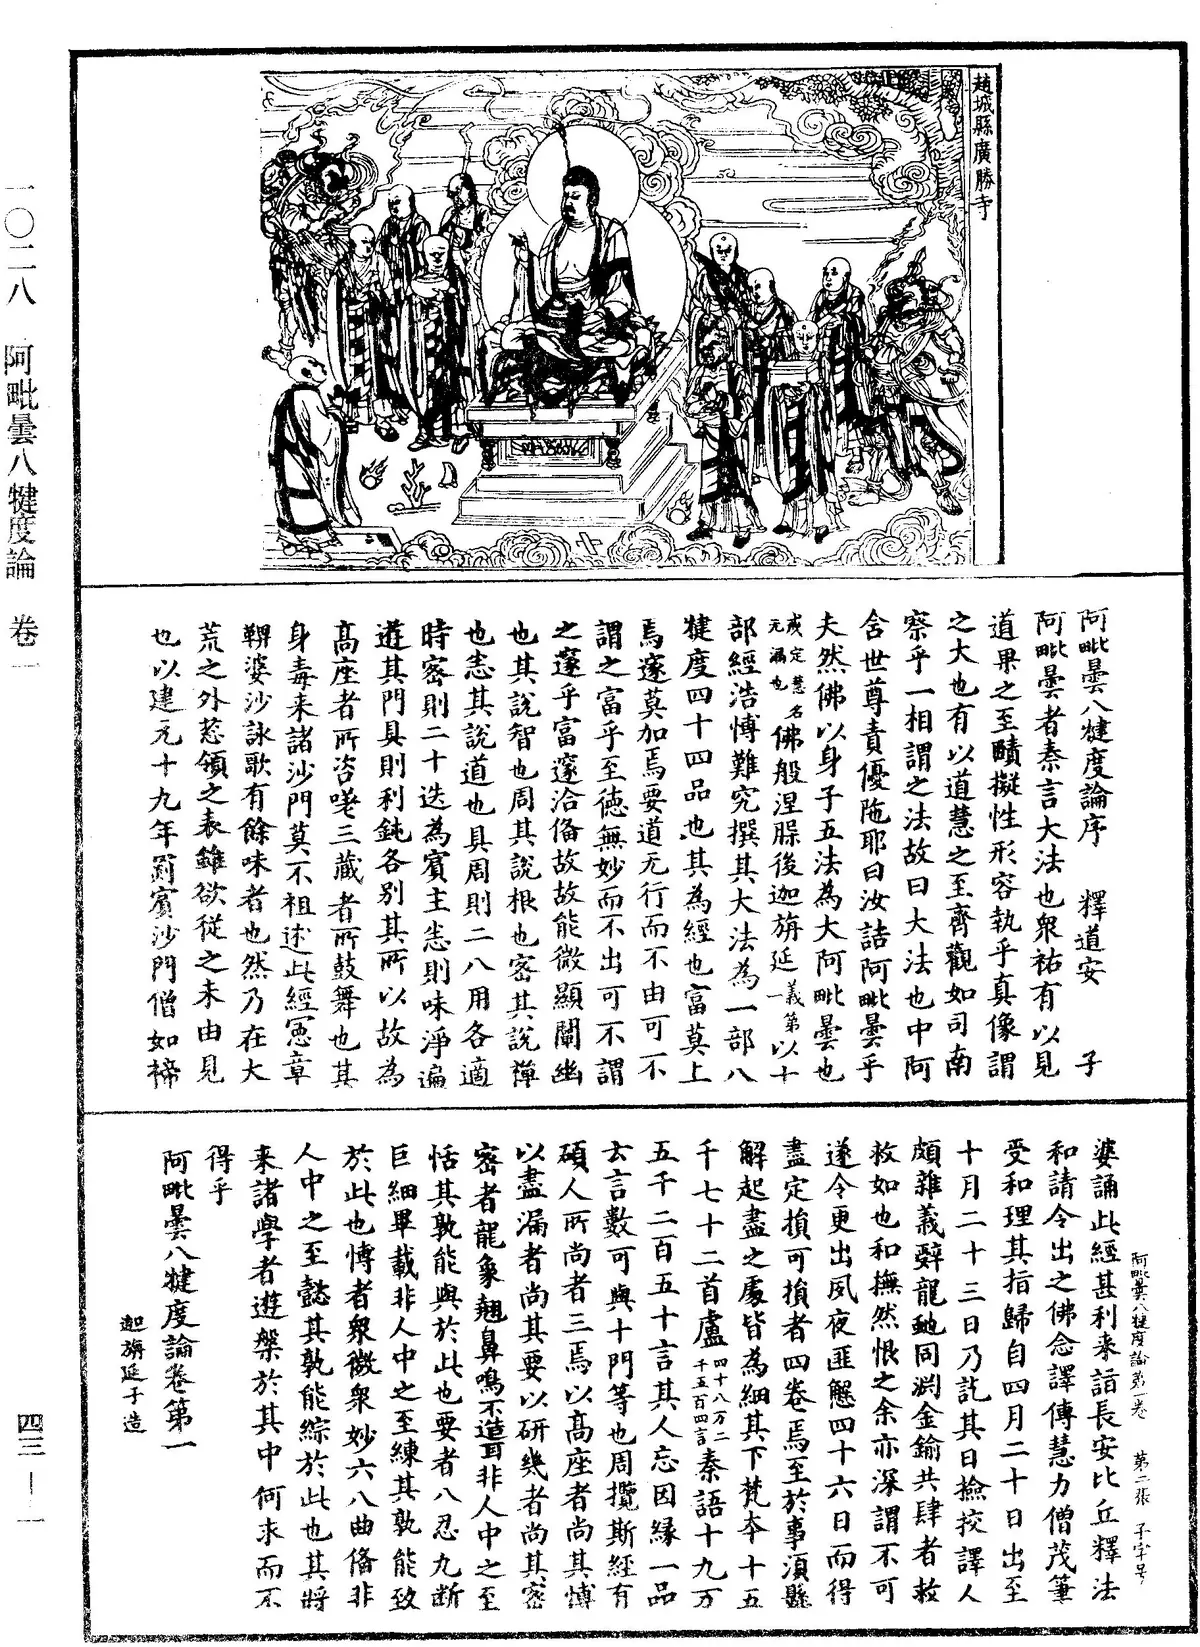 趙城縣廣勝寺
阿毗曇八犍度論序　釋道安　子
阿毗曇者秦言大法也衆祐有以見
道果之至賾擬性形容執乎真像謂
之大也有以道慧之至齊觀如司南
察乎一相謂之法故曰大法也中阿
含世尊責優陁耶曰汝詰阿毗曇乎
夫然佛以身子五法為大阿毗曇也
戒定慧名无漏也佛般涅脲後迦旃延義第一以十
部經浩愽難究撰其大法為一部八
犍度四十四品也其為經也富莫上
焉邃莫加焉要道无行而不由可不
謂之富乎至德無妙而不出可不謂
之邃乎富邃洽俻故故能微顯闡幽
也其說智也周其說根也密其說禪
也悉其說道也具周則二八用各適
時密則二十迭為賓主悉則味淨遍
遊其門具則利鈍各別其所以故為
髙座者所咨嗟三藏者所鼓舞也其
身毒来諸沙門莫不祖述此經憲章
鞞婆沙詠歌有餘味者也然乃在大
荒之外葱領之表雖欲從之未由見
也以建元十九年罽賓沙門僧如褅
阿毗曇八犍度論第一卷　第二張　子字号
婆誦此經甚利来詣長安比丘釋法
和請令出之佛念譯傳慧力僧茂筆
受和理其指歸自四月二十日出至
十月二十三日乃訖其日撿挍譯人
頗雜義辭龍虵同渕金鍮共肆者救
救如也和撫然恨之余亦深謂不可
遂令更出夙夜匪懈四十六日而得
盡定損可損者四卷焉至於事湏懸
解起盡之處皆為細其下梵夲十五
千七十二首盧四十八万二千五百四言秦語十九万
五千二百五十言其人忘因縁一品
去言數可與十門等也周攬斯經有
碩人所尚者三焉以髙座者尚其愽
以盡漏者尚其要以研幾者尚其密
密者龍象翹鼻鳴不造耳非人中之至
恬其孰能與於此也要者八忍九断
巨細畢載非人中之至練其孰能致
於此也愽者衆微衆妙六八曲俻非
人中之至懿其孰能綜於此也其將
来諸學者遊槃於其中何求而不
得乎
阿毗曇八犍度論卷第一
迦旃延子造
一〇二八　阿毗曇八犍度論　卷一
四三—一